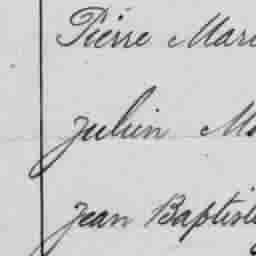 Pierre Mari
Julien Ma
Jean Baptiste